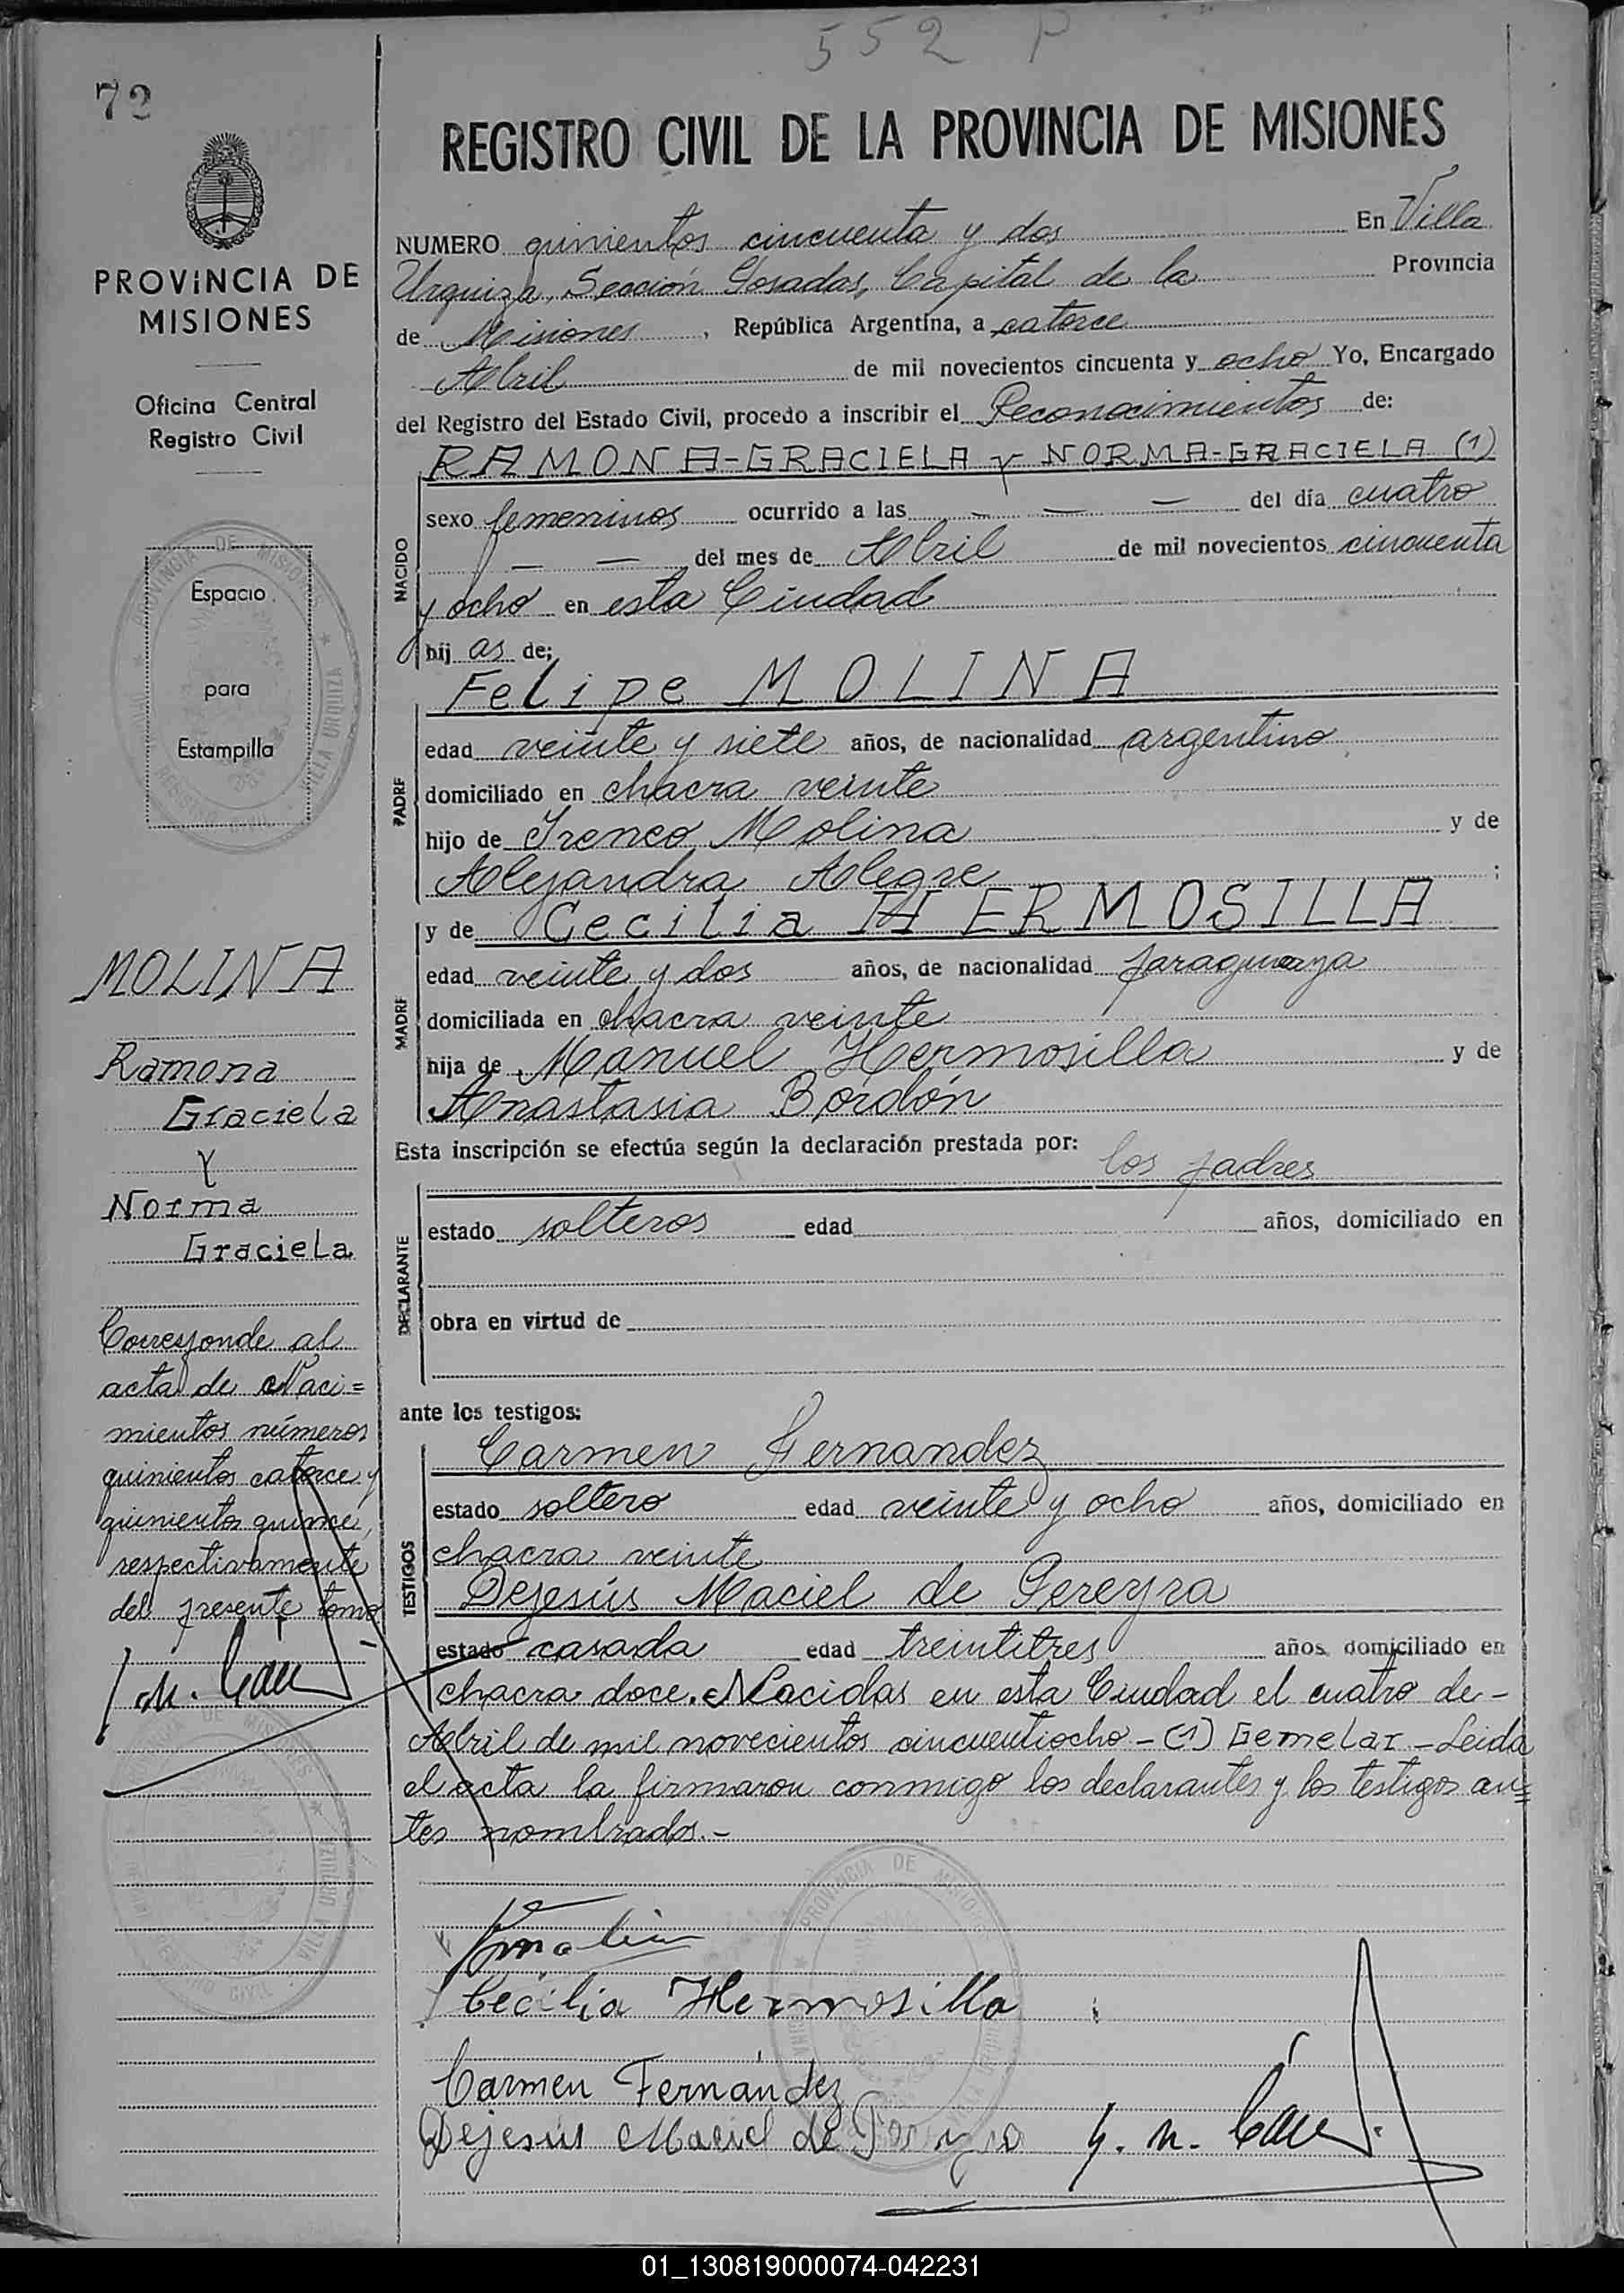 552 P
72
REGISTRO CIVIL DE LA PROVINCIA DE MISIONES
PROVINCIA DE
MISIONES
Oficina Central
Registro Civil
Espacio
para
Estampilla
MOLINA
Ramona
Graciela
y
Norma
Graciela
Corresponde al
acta de Naci=
mientos números
quinientos catorce y
quinientos quince,
respectivamente
del presente tomo
NUMERO quinientos cincuenta y dos En Villa
Urquiza, Sección Posadas, Capital de la Provincia
de Misiones, República Argentina, a catorce
Abril de mil novecientos cincuenta y ocho Yo, Encargado
del Registro del Estado Civil, procedo a inscribir el Reconocimientos de:
RAMONA-GRACIELA y NORMA-GRACIELA (1)
NACIDO
sexo femeninos ocurrido a las — — — del día cuatro
— — del mes de Abril de mil novecientos cincuenta
y ocho en esta Ciudad
hij as de;
Felipe MOLINA
PADRE
edad veinte y siete años, de nacionalidad argentino
domiciliado en chacra veinte
hijo de Ireneo Molina y de
Alejandra Alegre ;
y de Cecilia HERMOSILLA
MADRE
edad veinte y dos años, de nacionalidad paraguaya
domiciliada en chacra veinte
hija de Manuel Hermosilla y de
Anastasia Bordón
Esta inscripción se efectúa según la declaración prestada por:
los padres
DECLARANTE
estado solteros edad años, domiciliado en
obra en virtud de
ante los testigos:
TESTIGOS
Carmen Fernandez
estado soltero edad veinte y ocho años, domiciliado en
chacra veinte
Dejesús Maciel de Pereyra
estado casada edad treintitres años domiciliado en
chacra doce. Nacidas en esta Ciudad el cuatro de -
Abril de mil novecientos cincuentiocho - (1) Gemelar - Leida
el acta la firmaron conmigo los declarantes y los testigos an=
tes nombrados.-
Cecilia Hermosilla
Carmen Fernández
Dejesús Maciel de Pereyra
01_130819000074-042231